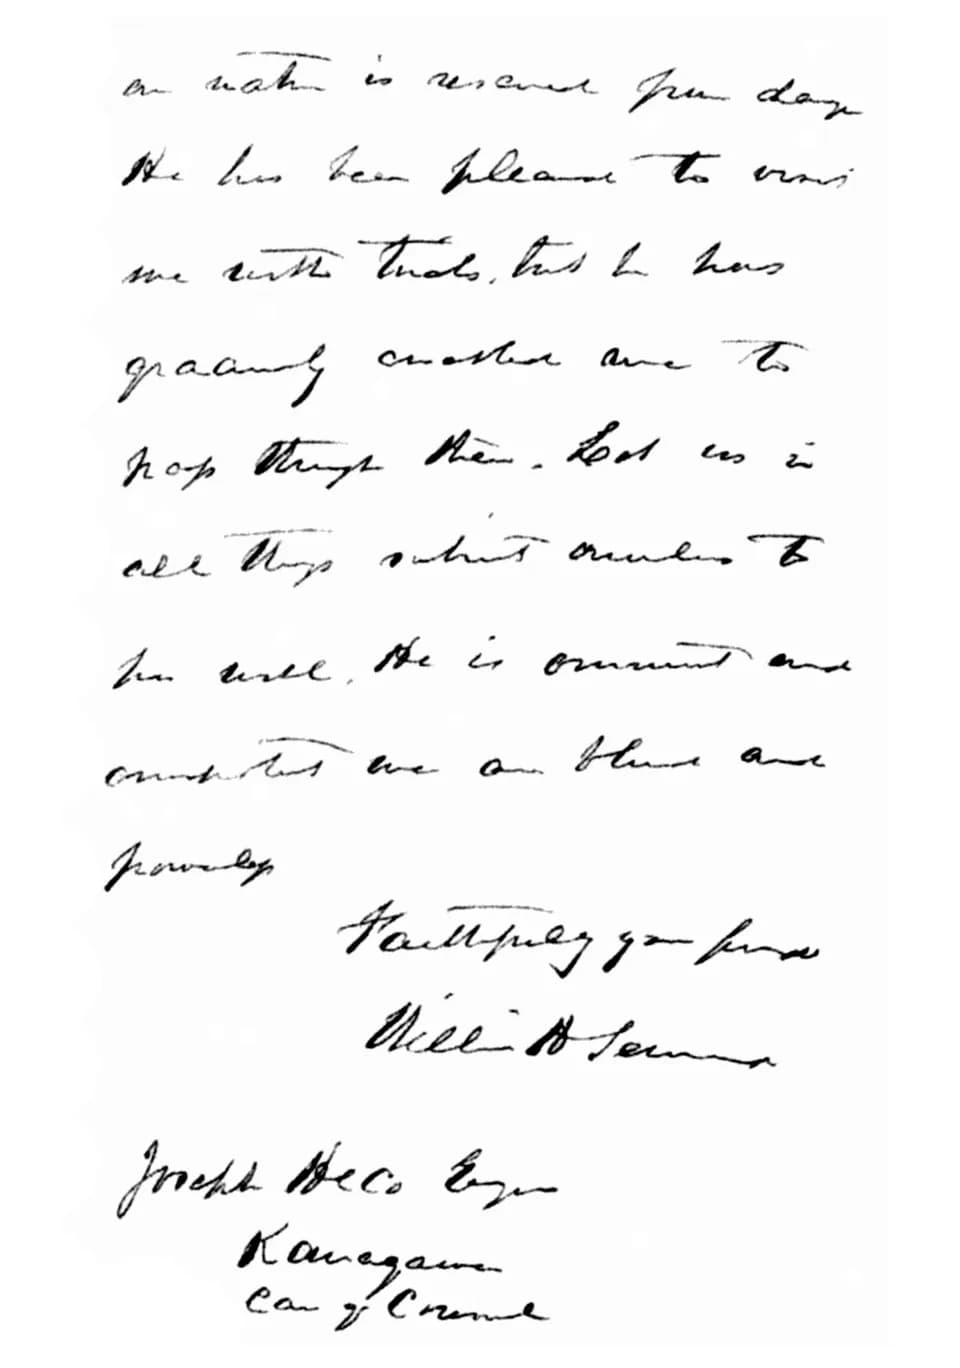 our nation is rescued from danger
He has been pleased to visit
me with trials, but he has
graciously enabled me to
pass through them. Let us in
all things submit ourselves to
his will. He is omniscient and
omnipotent we are blind and
powerless
Faithfully your friend
William H Seward
Joseph Heco Esquire
Kanagawa
Care of Consul